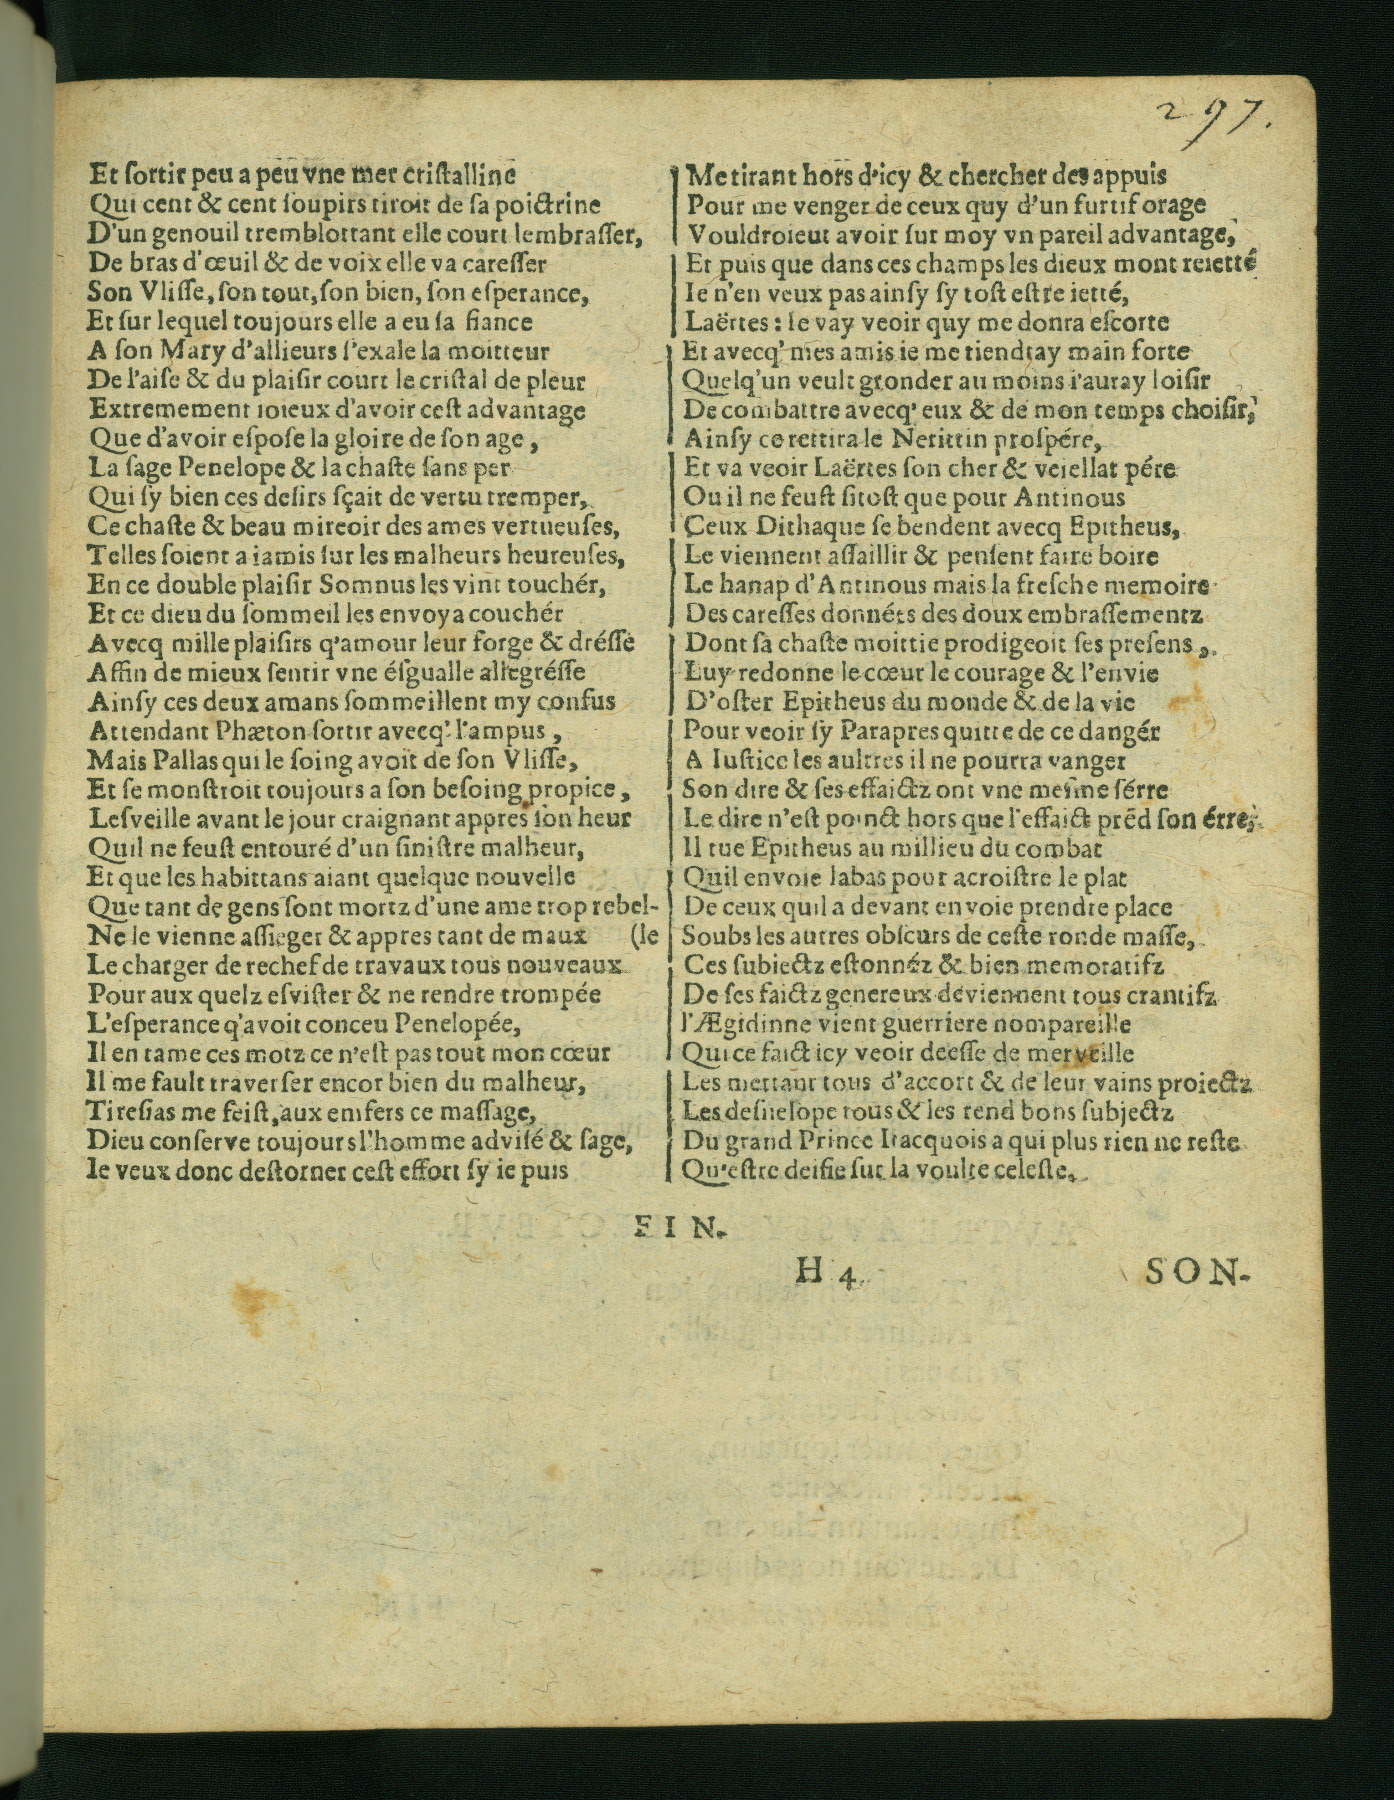 297.
Et ſortir peu a peu vne mer criſtalline
Qui cent & cent ſoupirs tiroit de ſa poictrine
D'un genouil tremblottant elle court lembraſſer,
De bras d'œuil & de voix elle va careſſer
Son Vliſſe, ſon tout, ſon bien, ſon eſperance,
Et ſur lequel toujours elle a eu ſa fiance
A ſon Mary d'allieurs ſ'exale la moitteur
De l'aiſe & du plaiſir court le criſtal de pleur
Extremement ioieux d'avoir ceſt advantage
Que d'avoir eſpoſe la gloire de ſon age,
La ſage Penelope & la chaſte ſans per
Qui ſy bien ces deſirs ſçait de vertu tremper,
Ce chaſte & beau mireoir des ames vertueuſes,
Telles ſoient a iamis ſur les malheurs heureuſes,
En ce double plaiſir Somnus les vint touchér,
Et ce dieu du ſommeil les envoya couchér
Avecq mille plaiſirs q'amour leur forge & dréſſe
Affin de mieux ſentir vne éſgualle allegréſſe
Ainſy ces deux amans ſommeillent my confus
Attendant Phæton ſortir avecq' l'ampus,
Mais Pallas qui le ſoing avoit de ſon Vliſſe,
Et ſe monſtroit toujours a ſon beſoing propice,
Leſveille avant le jour craignant appres ſon heur
Quil ne feuſt entouré d'un ſiniſtre malheur,
Et que les habittans aiant quelque nouvelle
Que tant de gens ſont mortz d'une ame trop rebel-
Ne le vienne aſſieger & appres tant de maux (le
Le charger de rechef de travaux tous nouveaux
Pour aux quelz eſviſter & ne rendre trompée
L'eſperance q'avoit conceu Penelopée,
Il en tame ces motz ce n'eſt pas tout mon cœur
Il me fault traverſer encor bien du malheur,
Tireſias me feiſt, aux emfers ce maſſage,
Dieu conſerve toujours l'homme adviſé & ſage,
Ie veux donc deſtorner ceſt effort ſy ie puis
Me tirant hors d'icy & chercher des appuis
Pour me venger de ceux quy d'un furtif orage
Vouldroieut avoir ſur moy vn pareil advantage,
Et puis que dans ces champs les dieux mont reietté
Ie n'en veux pas ainſy ſy toſt eſtre ietté,
Laërtes: Ie vay veoir quy me donra eſcorte
Et avecq' mes amis ie me tiendray main forte
Quelq'un veult gronder au moins i'auray loiſir
De combattre avecq' eux & de mon temps choiſir,
Ainſy ce rettira le Nerittin proſpére,
Et va veoir Laërtes ſon cher & veiellat pére
Ou il ne feuſt ſitoſt que pour Antinous
Ceux Dithaque ſe bendent avecq Epitheus,
Le viennent aſſaillir & penſent faire boire
Le hanap d'Antinous mais la freſche memoire
Des careſſes donnéts des doux embraſſementz
Dont ſa chaſte moittie prodigeoit ſes preſens,
Luy redonne le cœur le courage & l'envie
D'oſter Epitheus du monde & de la vie
Pour veoir ſy Parapres quitte de ce dangér
A Iuſtice les aultres il ne pourra vanger
Son dire & ſes effaictz ont vne meſme ſérre
Le dire n'eſt poinct hors que l'effaict prẽd ſon érre,
Il tue Epitheus au millieu du combat
Quil envoie labas pour acroiſtre le plat
De ceux quil a devant envoie prendre place
Soubs les autres obſcurs de ceſte ronde maſſe,
Ces ſubiectz eſtonnéz & bien memoratifz
De ſes faictz genereux deviennent tous crantifz
l'Ægidinne vient guerriere nompareille
Qui ce faict icy veoir deeſſe de merveille
Les mettant tous d'accort & de leur vains proiectz
Les deſueſope tous & les rend bons ſubjectz
Du grand Prince Itacquois a qui plus rien ne reſte
Qu'eſtre deifie ſur la voulte celeſte.
FIN.
H 4
SON-